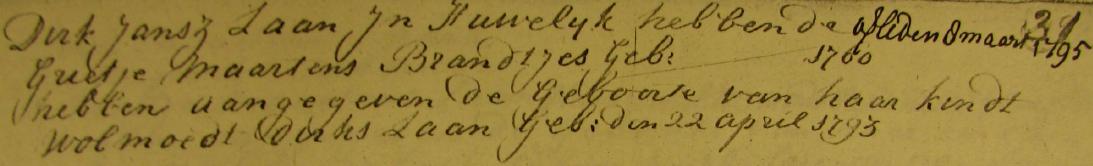 Dirk Jansz Laan Jn Huwelyk hebbende afliden 8 maart 1795
Grietje Maartens Brandtjes Geb: 1760
hebben aangegeven de Geboorte van haar kindt
Wolmoedt Dirks Laan Geb: den 22 april 1793